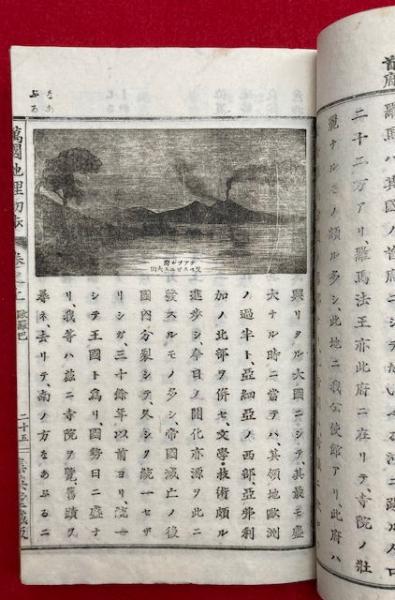 首府
羅馬ハ其國ノ首府ニシテ、人口
二十二万アリ、羅馬法王亦此府ニ在リテ、寺院ノ壯
麗ナルモノ頗ル多シ、此地ニ我公使館アリ、此府ハ
興リタル大國ニシテ、其最モ盛
大ナル時ニ當テハ、其領地歐洲
ノ過半ト、亞細亞ノ西部、亞弗利
加ノ北部ヲ併セ、文學技術頗ル
進歩シ、今日ノ開化亦源ヲ此ニ
發スルモノ多シ、帝國滅亡ノ後
國内分裂シテ、久シク統一セザ
リシガ、三十餘年以前ヨリ、統一
シテ王國ト爲リ、國勢日ニ盛ナ
リ、我等ハ茲ニ寺院ヲ覽、舊蹟ヲ
尋ネ、去リテ、南ノ方なあぷるニ
なあ
ぷる
萬國地理初歩 卷之上 歐羅巴 二十五 集英堂藏版